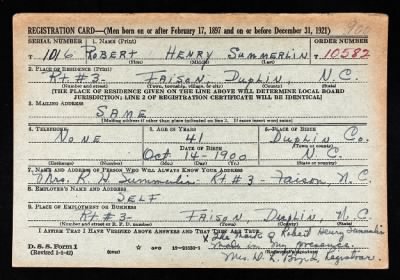 REGISTRATION CARD—(Men born on or after February 17, 1897 and on or before December 31, 1921)
SERIAL NUMBER 1. NAME (Print) ORDER NUMBER
T 1016 ROBERT HENRY SUMMERLIN T 10582
(First) (Middle) (Last)
2. PLACE OF RESIDENCE (Print)
Rt #3- FAISON, DUPLIN, N.C.
(Number and street) (Town, township, village, or city) (County) (State)
[THE PLACE OF RESIDENCE GIVEN ON THE LINE ABOVE WILL DETERMINE LOCAL BOARD
JURISDICTION; LINE 2 OF REGISTRATION CERTIFICATE WILL BE IDENTICAL]
3. MAILING ADDRESS
SAME
[Mailing address if other than place indicated on line 2. If same insert word same]
4. TELEPHONE 5. AGE IN YEARS 6. PLACE OF BIRTH
NONE 41 DUPLIN CO.
DATE OF BIRTH (Town or county)
Oct 14-1900 N.C.
(Exchange) (Number) (Mo.) (Day) (Yr.) (State or country)
7. NAME AND ADDRESS OF PERSON WHO WILL ALWAYS KNOW YOUR ADDRESS
Mrs. R. H. Summerlin Rt #3 - Faison, N.C.
8. EMPLOYER'S NAME AND ADDRESS
SELF
9. PLACE OF EMPLOYMENT OR BUSINESS
Rt #3- FAISON, DUPLIN, N.C.
(Number and street or R. F. D. number) (Town) (County) (State)
I AFFIRM THAT I HAVE VERIFIED ABOVE ANSWERS AND THAT THEY ARE TRUE.
X The mark of Robert Henry Summerlin
D. S. S. Form 1 made in my presence.
(Revised 1-1-42) (over) Mrs. D. L. Registrar.